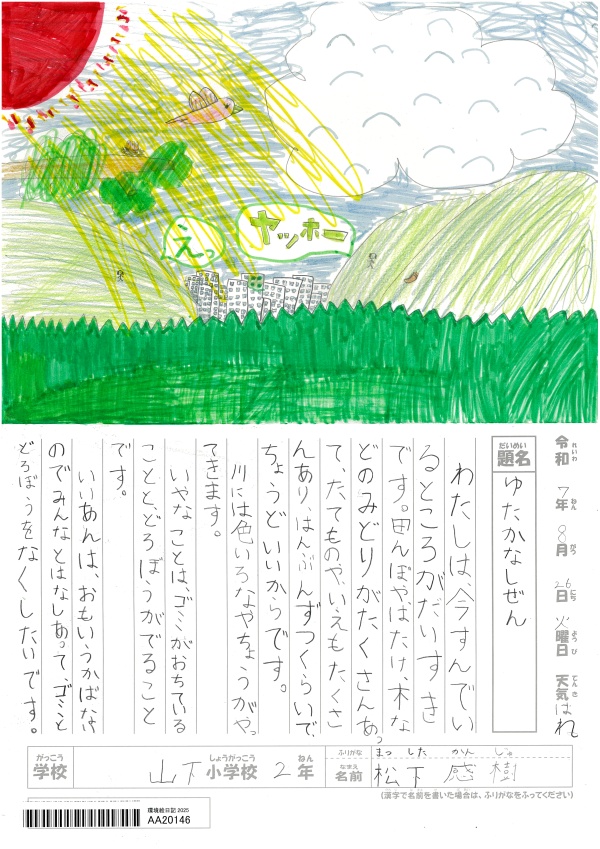 えっ
ヤッホー
令和 7年 8月 26日 火曜日 天気 はれ
れいわ ねん がつ にち ようび てんき
だいめい
題名
ゆたかなしぜん
わたしは、今すんでい
るところがだいすき
です。田んぼやはたけ、木な
どのみどりがたくさんあっ
て、たてものや、いえもたくさ
んあり、はんぶんずつくらいで、
ちょうどいいからです。
川には色いろなやちょうがやっ
てきます。
いやなことは、ゴミがおちている
ことと、どろぼうがでること
です。
いいあんは、おもいうかばない
のでみんなとはなしあって、ゴミと
どろぼうをなくしたいです。
がっこう
学校
山下
しょうがっこう
小学校
2
ねん
年
ふりがな
まつ した かん じゅ
なまえ
名前
松下 感樹
(漢字で名前を書いた場合は、ふりがなをふってください)
環境絵日記 2025
AA20146